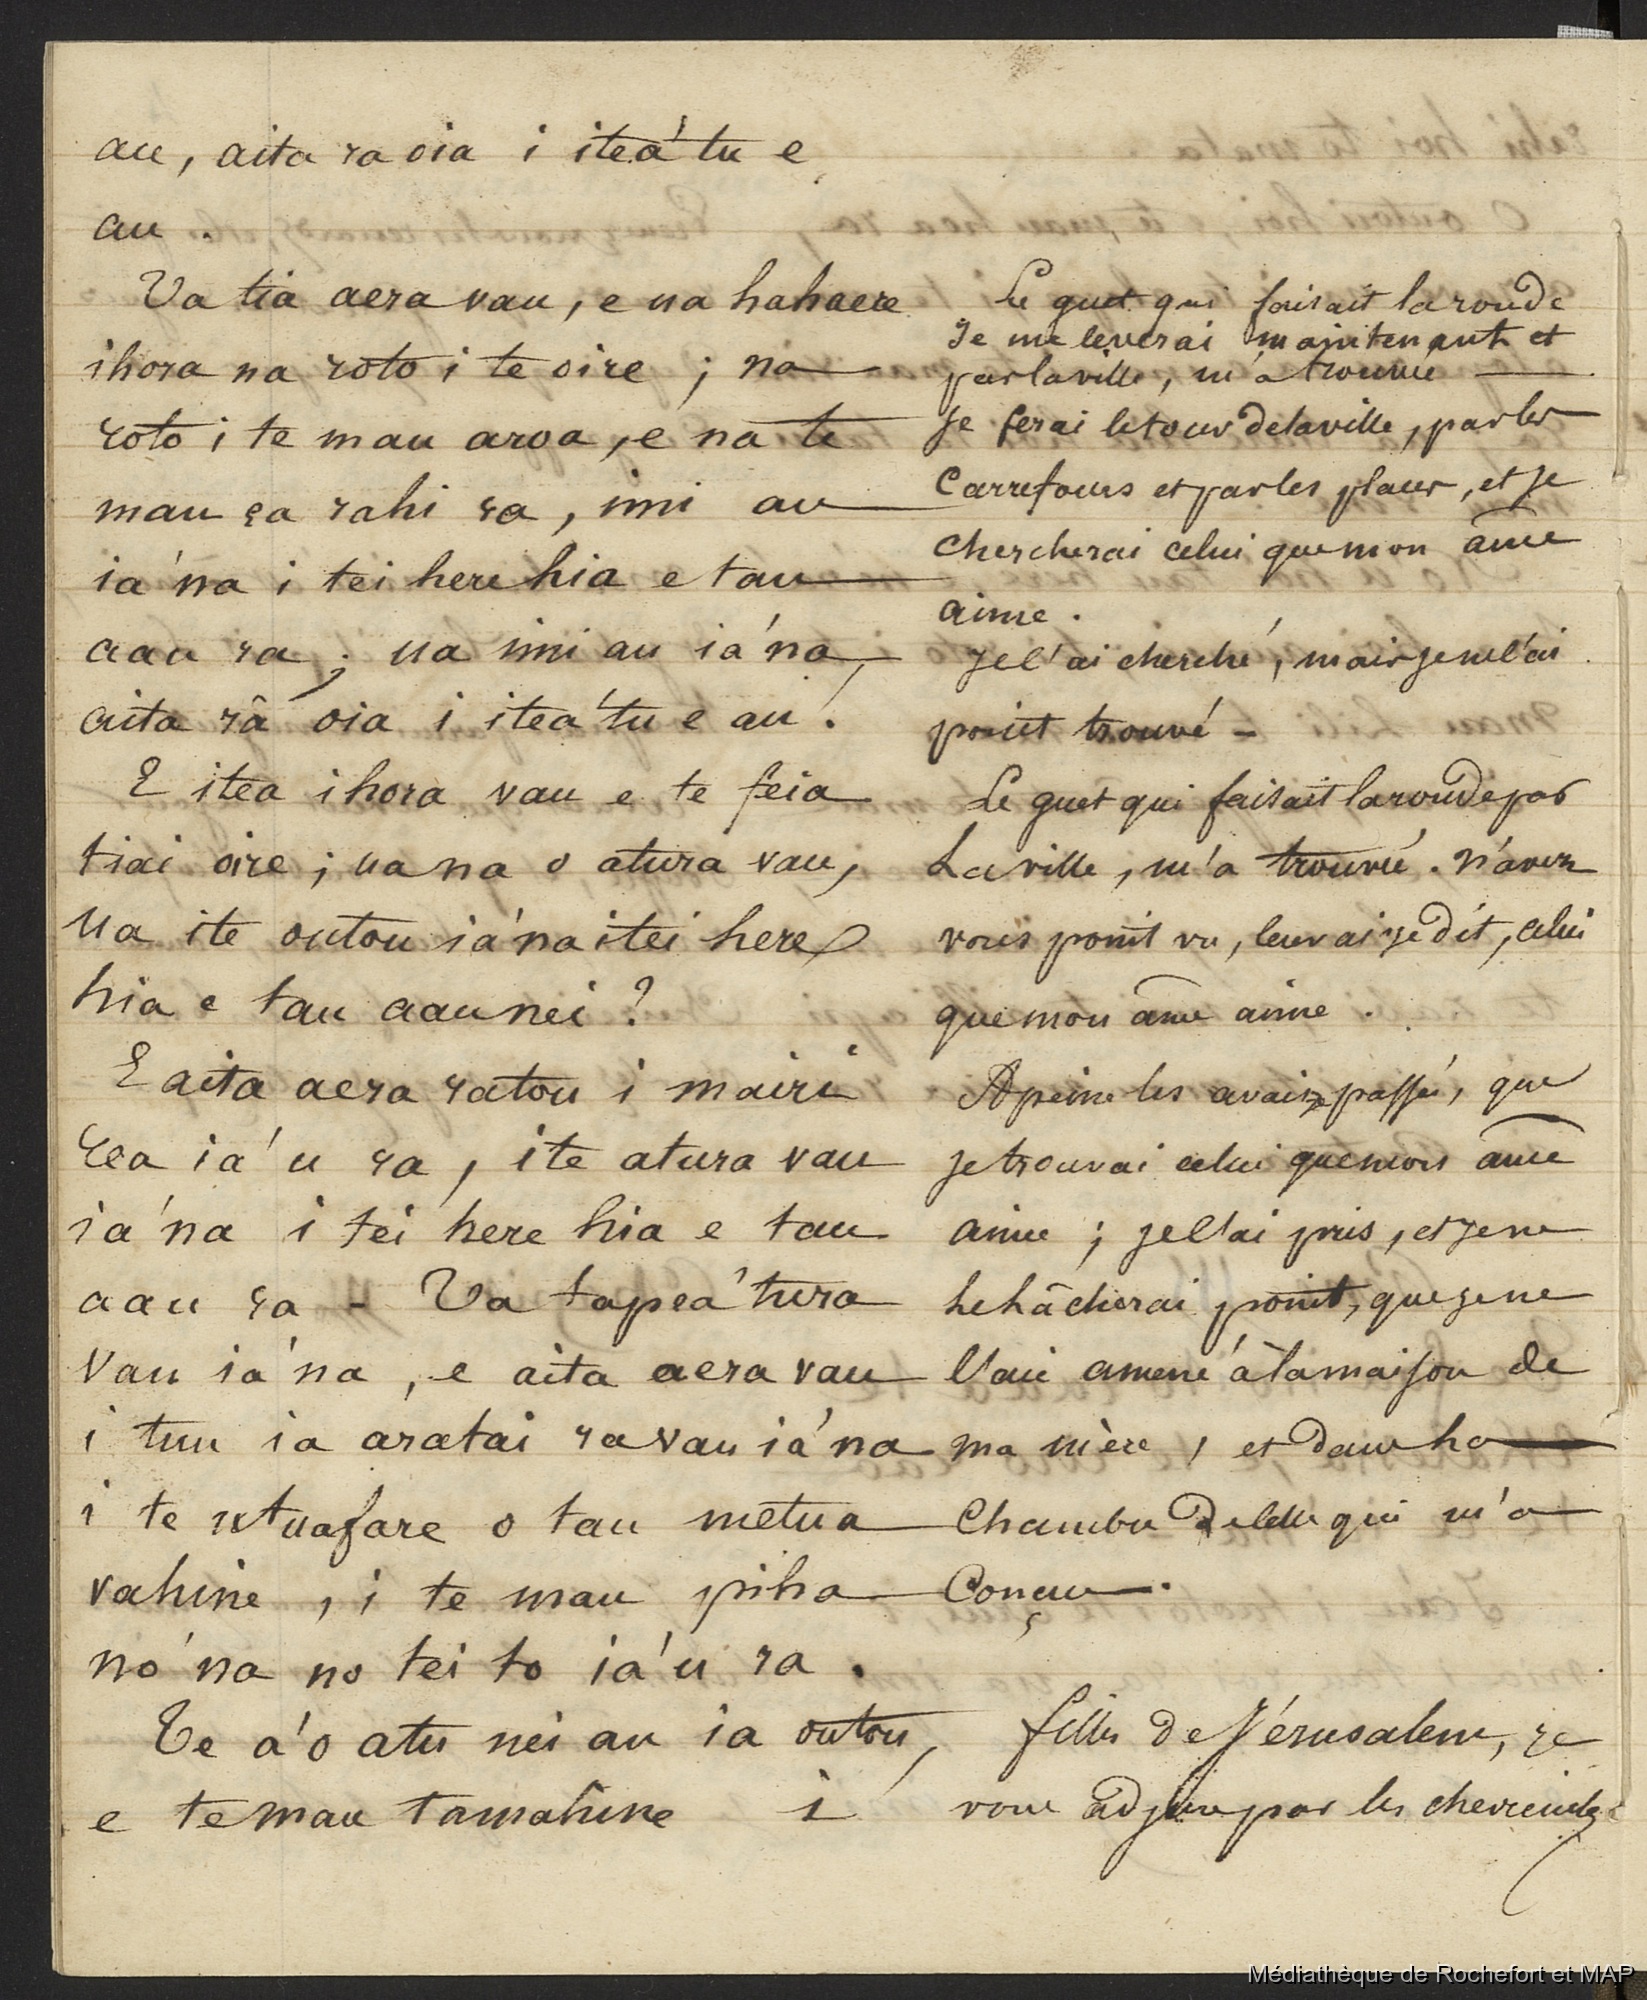 au, aita ra oia i iteá'tu e
au.
Ua tia aera vau, e ua hahaere
ihora na roto i te oire ; na
roto i te mau aroa, e na te
mau ea rahi ra, imi au
iá'na i tei here hia e tau
aau ra ; ua imi au iá'na,
aita râ oia i itea'tu e au.
E itea ihora vau e te feia
tiai oire ; ua na o atura vau,
ua ite outou iá'na itei here
hia e tau aau nei ?
E aita aera ratou i mairi
rea iá'u ra, ite atura vau
iá'na i tei here hia e tau
aau ra - Ua tapeá'tura
vau iá'na, e aita aera vau
i tuu ia aratai ra vau iá'na
i te utuafare o tau metua
vahine, i te mau piha
nó'na no tei to iá'u ra.
Te á'o atu nei au ia outou,
e te mau tamahine i
Le guet qui faisait la ronde
Je me leverai maintenant et
par la ville, m'a trouvée
je ferai le tour de la ville, par les
carrefours et par les places, et je
chercherai celui que mon âme
aime.
Je l'ai cherché, mais je ne l'ai
point trouvé -
Le guet qui faisait la ronde par
La ville, m'a trouvée. N'avez
vous point vu, leur ai je dit, celui
que mon âme aime.
A peine les avais je passés, que
je trouvai celui que mon âme
aime ; je l'ai pris, et je ne
le lâcherai point, que je ne
l'aie amené à la maison de
ma mère, et dans la
chambre de celle qui m'a
Conçue.
filles de Jérusalem, je
vous adjure par les chevreuils
Médiathèque de Rochefort et MAP